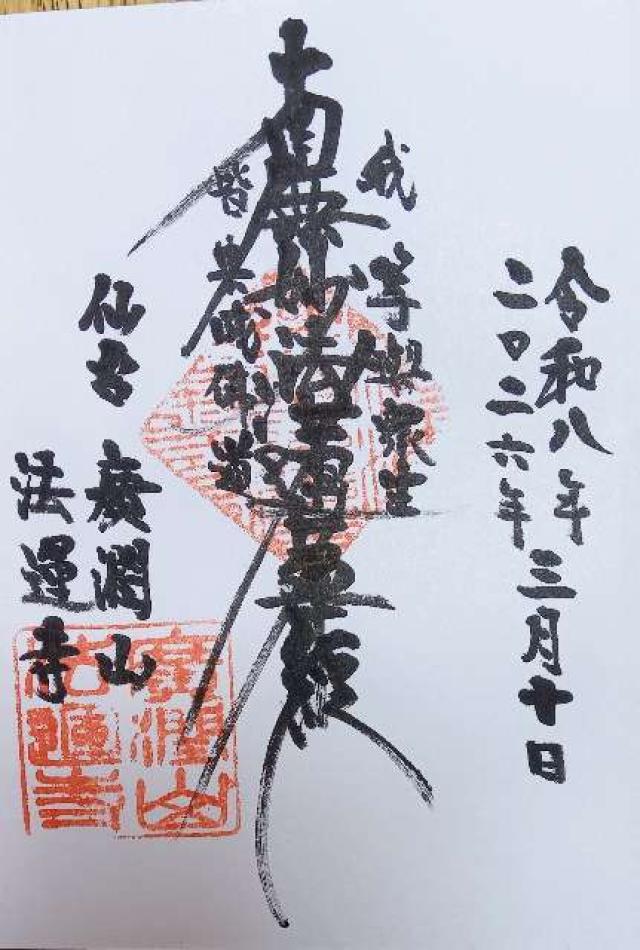 令和八年三月十日
二〇二六年
我等與衆生
南無妙法蓮華経
皆共成佛道
仙台 廣潤山
法運寺
廣潤山
法運寺